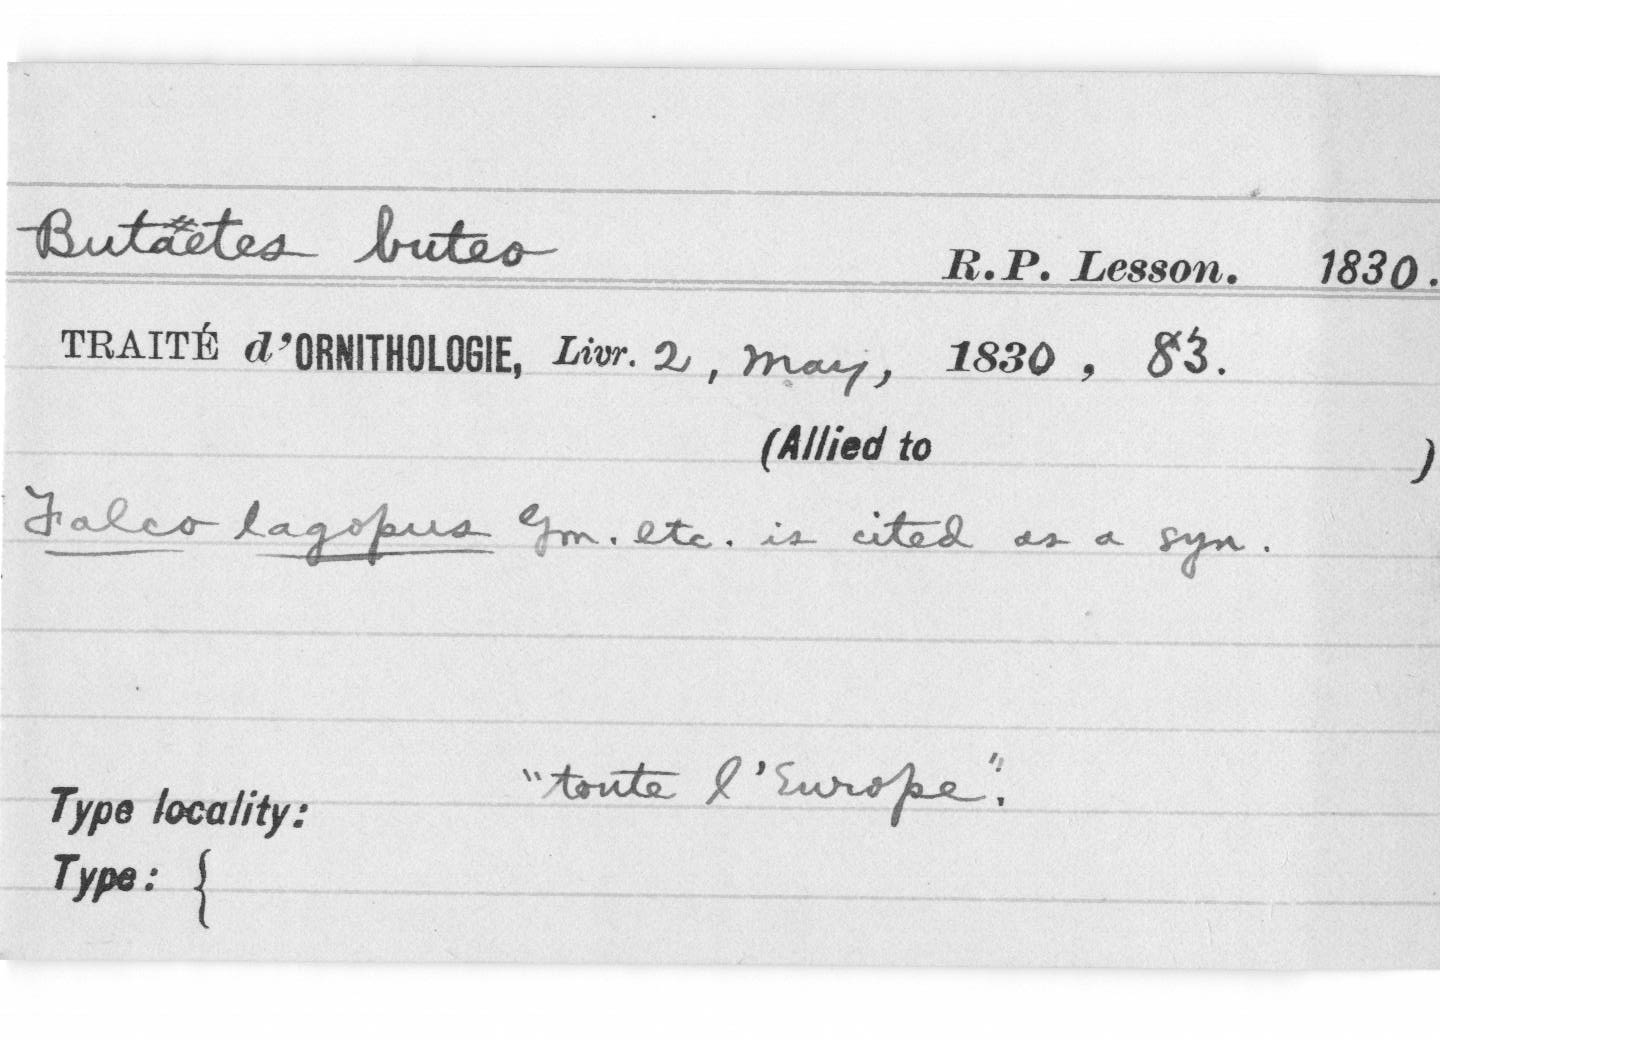 Butaëtes buteo R.P. Lesson. 1830.
TRAITÉ d'ORNITHOLOGIE, Livr. 2, May, 1830, 83.
(Allied to )
Falco lagopus Gm. etc. is cited as a syn.
"toute l'Europe".
Type locality:
Type: {